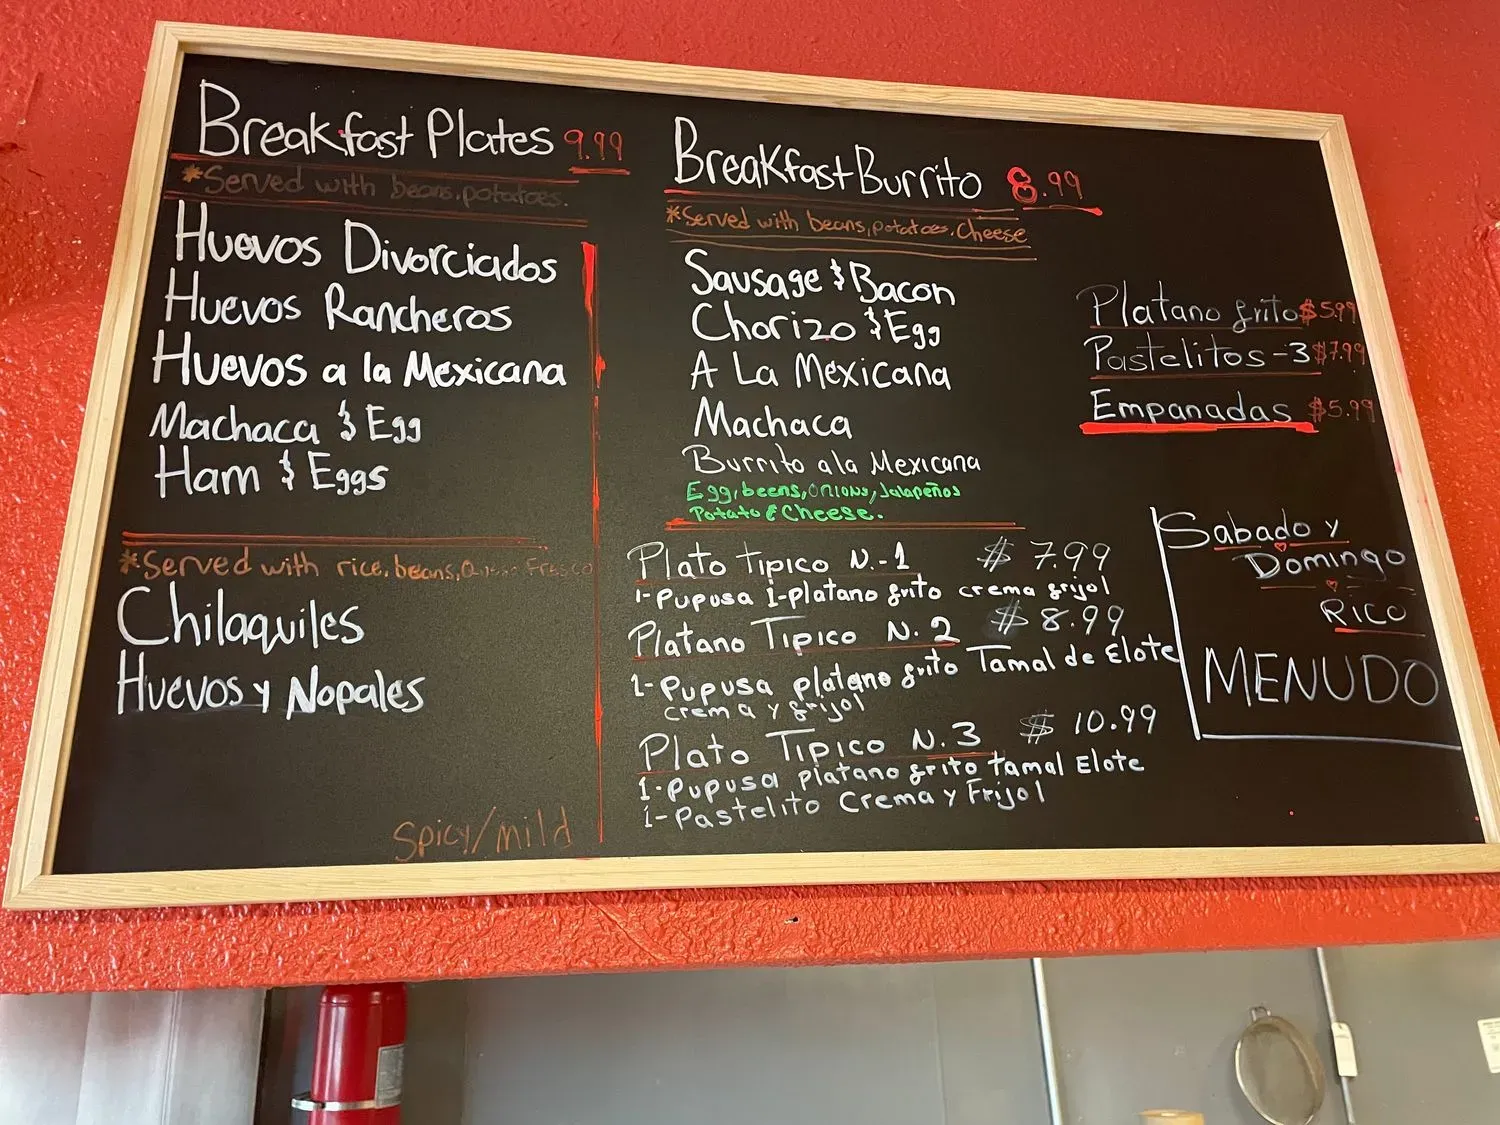 Breakfast Plates 9.99
*Served with beans, potatoes.
Huevos Divorciados
Huevos Rancheros
Huevos a la Mexicana
Machaca & Egg
Ham & Eggs
*Served with rice, beans, Queso Fresco
Chilaquiles
Huevos y Nopales
Spicy/mild
Breakfast Burrito 8.99
*Served with beans, potatoes, Cheese
Sausage & Bacon
Chorizo & Egg
A La Mexicana
Machaca
Burrito ala Mexicana
Egg, beens, Onions, Jalapeños
Potato & Cheese.
Plato Tipico N.-1 $ 7.99
1-Pupusa 1-platano frito crema frijol
Platano Tipico N. 2 $ 8.99
1-Pupusa platano frito Tamal de Elote
crema y frijol
Plato Tipico N. 3 $ 10.99
1-Pupusa platano frito tamal Elote
1-Pastelito Crema y Frijol
Platano frito $5.99
Pastelitos-3 $7.99
Empanadas $5.99
Sabado y
Domingo
Rico
MENUDO